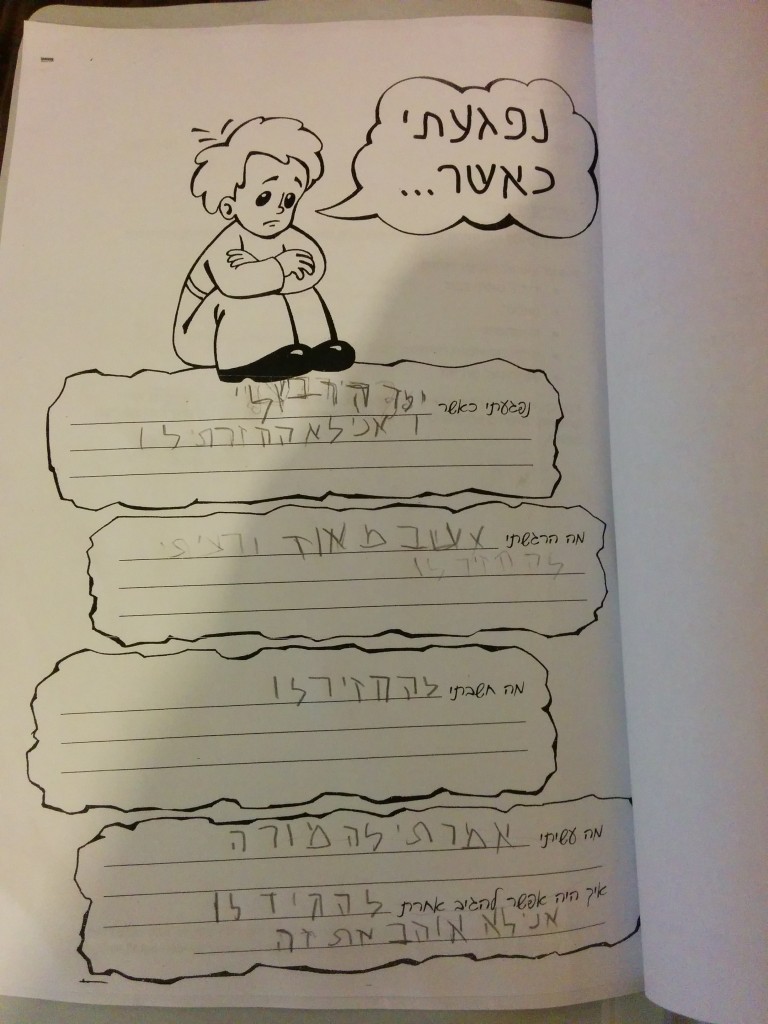 נפגעתי
כאשר...
נפגעתי כאשר
ו אני לא החזרתי לו
מה הרגשתי עצוב מאוד ורציתי
לה חזיר לו
מה חשבתי להחזיר לו
מה עשיתי אמרתי לה מורה
איך היה אפשר להגיב אחרת להגיד לו
אני לא אוהב את זה